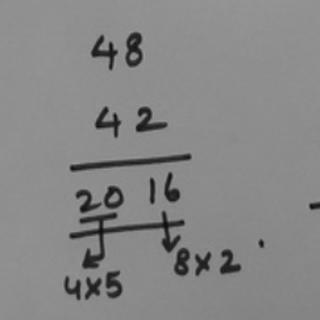 48
42
20 16
4×5 8×2